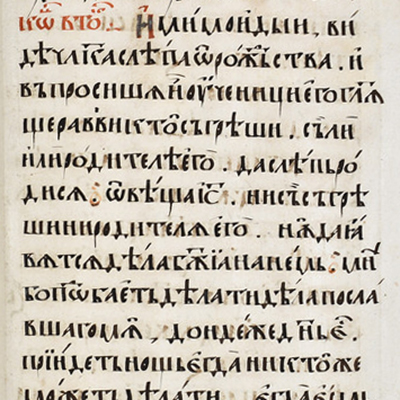 И мимоидыи, ви
дѣ чл҃ка слѣпа ѿ рожⷭ҇ьства . и
въпросишѧ и оученици его гл҃ѧ
ще равви кто съгрѣши . съ ли
или родителѣ его . да слѣпъ ро
дисѧ ѿвѣща іс҃ . ни сь съгрѣ
ши ни родителѧ его . нѫ да ꙗ
вѧтсѧ дѣла бж҃їа на немь мнⷤ
бо пⷣобаетъ дѣлати дѣла посла
вшаго мѧ , дондеже дн҃ь еⷭ҇ .
прїидетъ нощь егда никтоже
можетъ дѣлати